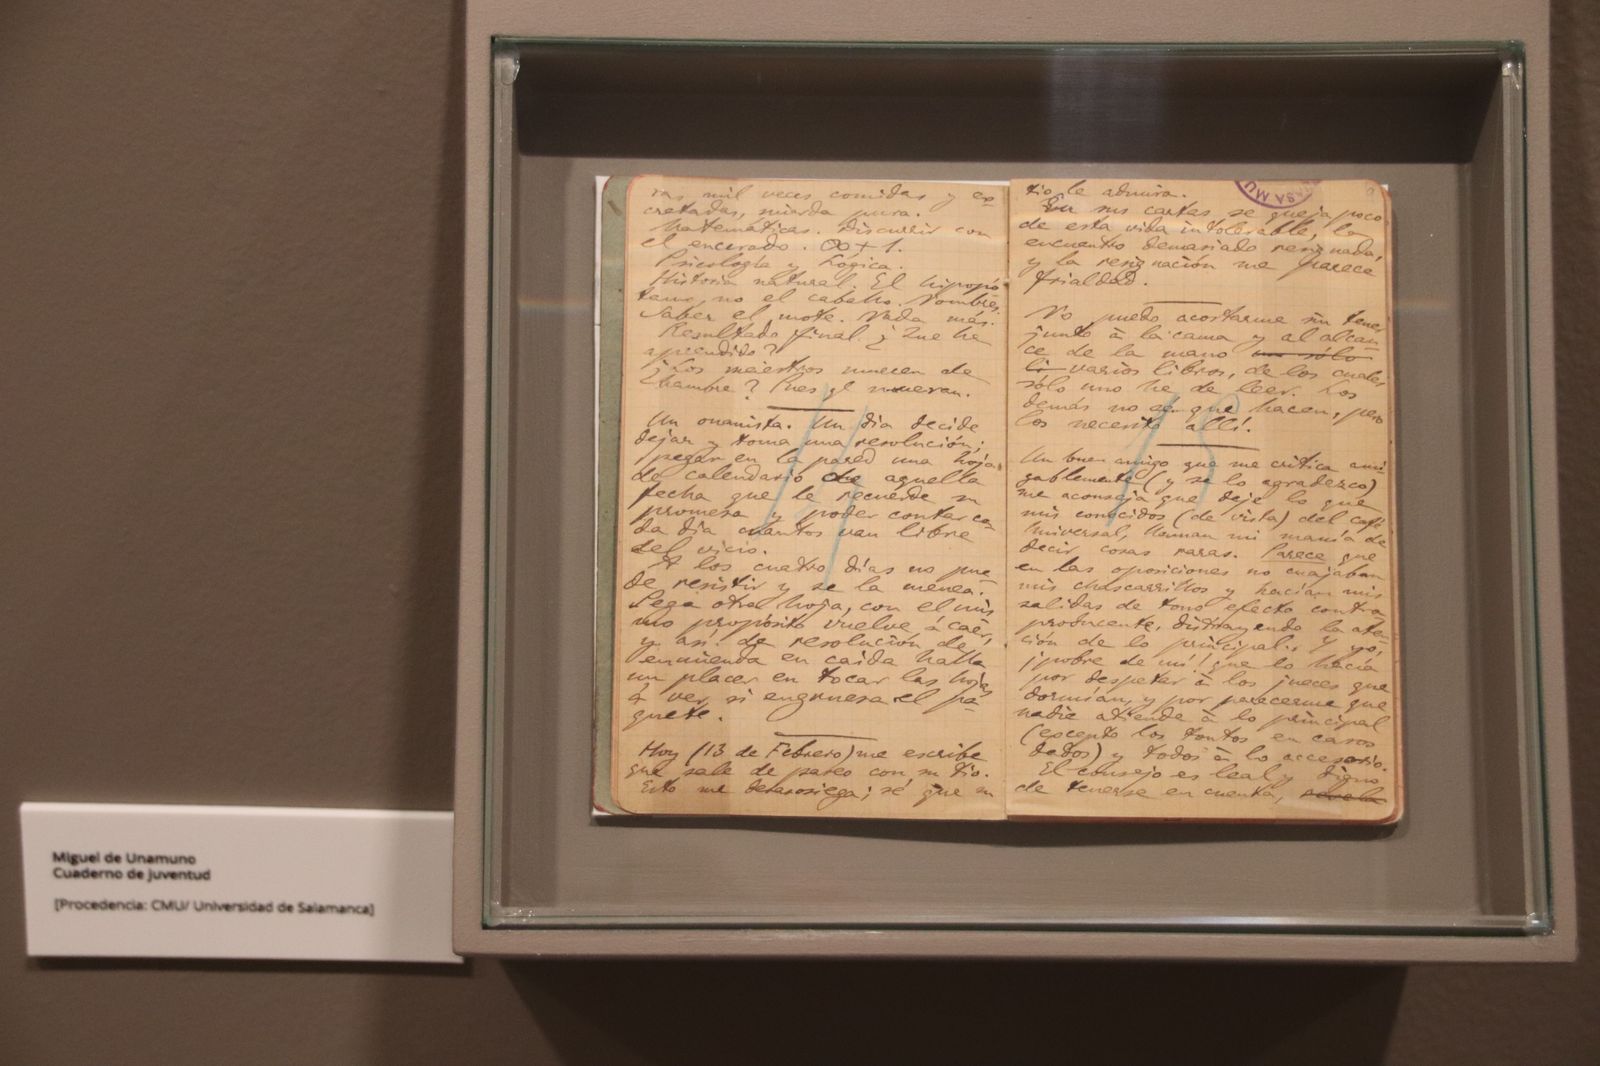 ras mil veces comidas y ex
cretadas, mierda pura.
Matemáticas. Discurrir con
el encerado. ∞ + 1.
Psicología y Lógica.
Historia natural. El hipopó
tamo, no el caballo. Nombres.
Saber el mote. Nada más.
Resultado final ¿Que he
aprendido?
¿Los maestros mueren de
hambre? Pues q! mueran.
Un onanista. Un dia decide
dejar y toma una resolución;
pegar en la pared una hoja
de calendario de aquella
fecha que le recuerde su
promesa y poder contar ca
da dia cuantos van libre
del vicio.
A los cuatro días no pue
de resistir y se la menea.
Pega otra hoja, con el mis
mo propósito vuelve á caer,
y así de resolución de
enmienda en caida halla
un placer en tocar las hojas
á ver si engruesa el pa-
quete.
Hoy (13 de Febrero) me escribe
que sale de paseo con su tio.
Esto me desasosiega; sé que su
tio le admira.
En sus cartas se queja poco
de esta vida intolerable, la
encuentro demasiado resignada,
y la resignación me parece
frialdad.
No puedo acostarme sin tener
junto á la cama y al alcan
ce de la mano un sólo
li varios libros, de los cuales
sólo uno he de leer. Los
demás no se que hacen, pero
los necesito allí.
Un buen amigo que me critica ami
gablemente (y se lo agradezco)
me aconseja que deje lo que
mis conocidos (de vista) del café
Universal, llaman mi manía de
decir cosas raras. Parece que
en las oposiciones no cuajaban
mis chascarrillos y hacían mis
salidas de tono efecto contra
producente, distrayendo la aten-
ción de lo principal. Y yo,
¡pobre de mí! que lo hacía
por despertar á los jueces que
dormían, y por parecerme que
nadie atiende á lo principal
(excepto los tontos en casos
dados) y todos á lo accesorio.
El consejo es leal y digno
de tenerse en cuenta, revela
14
15
CASA MU
Miguel de Unamuno
Cuaderno de juventud
[Procedencia: CMU/ Universidad de Salamanca]